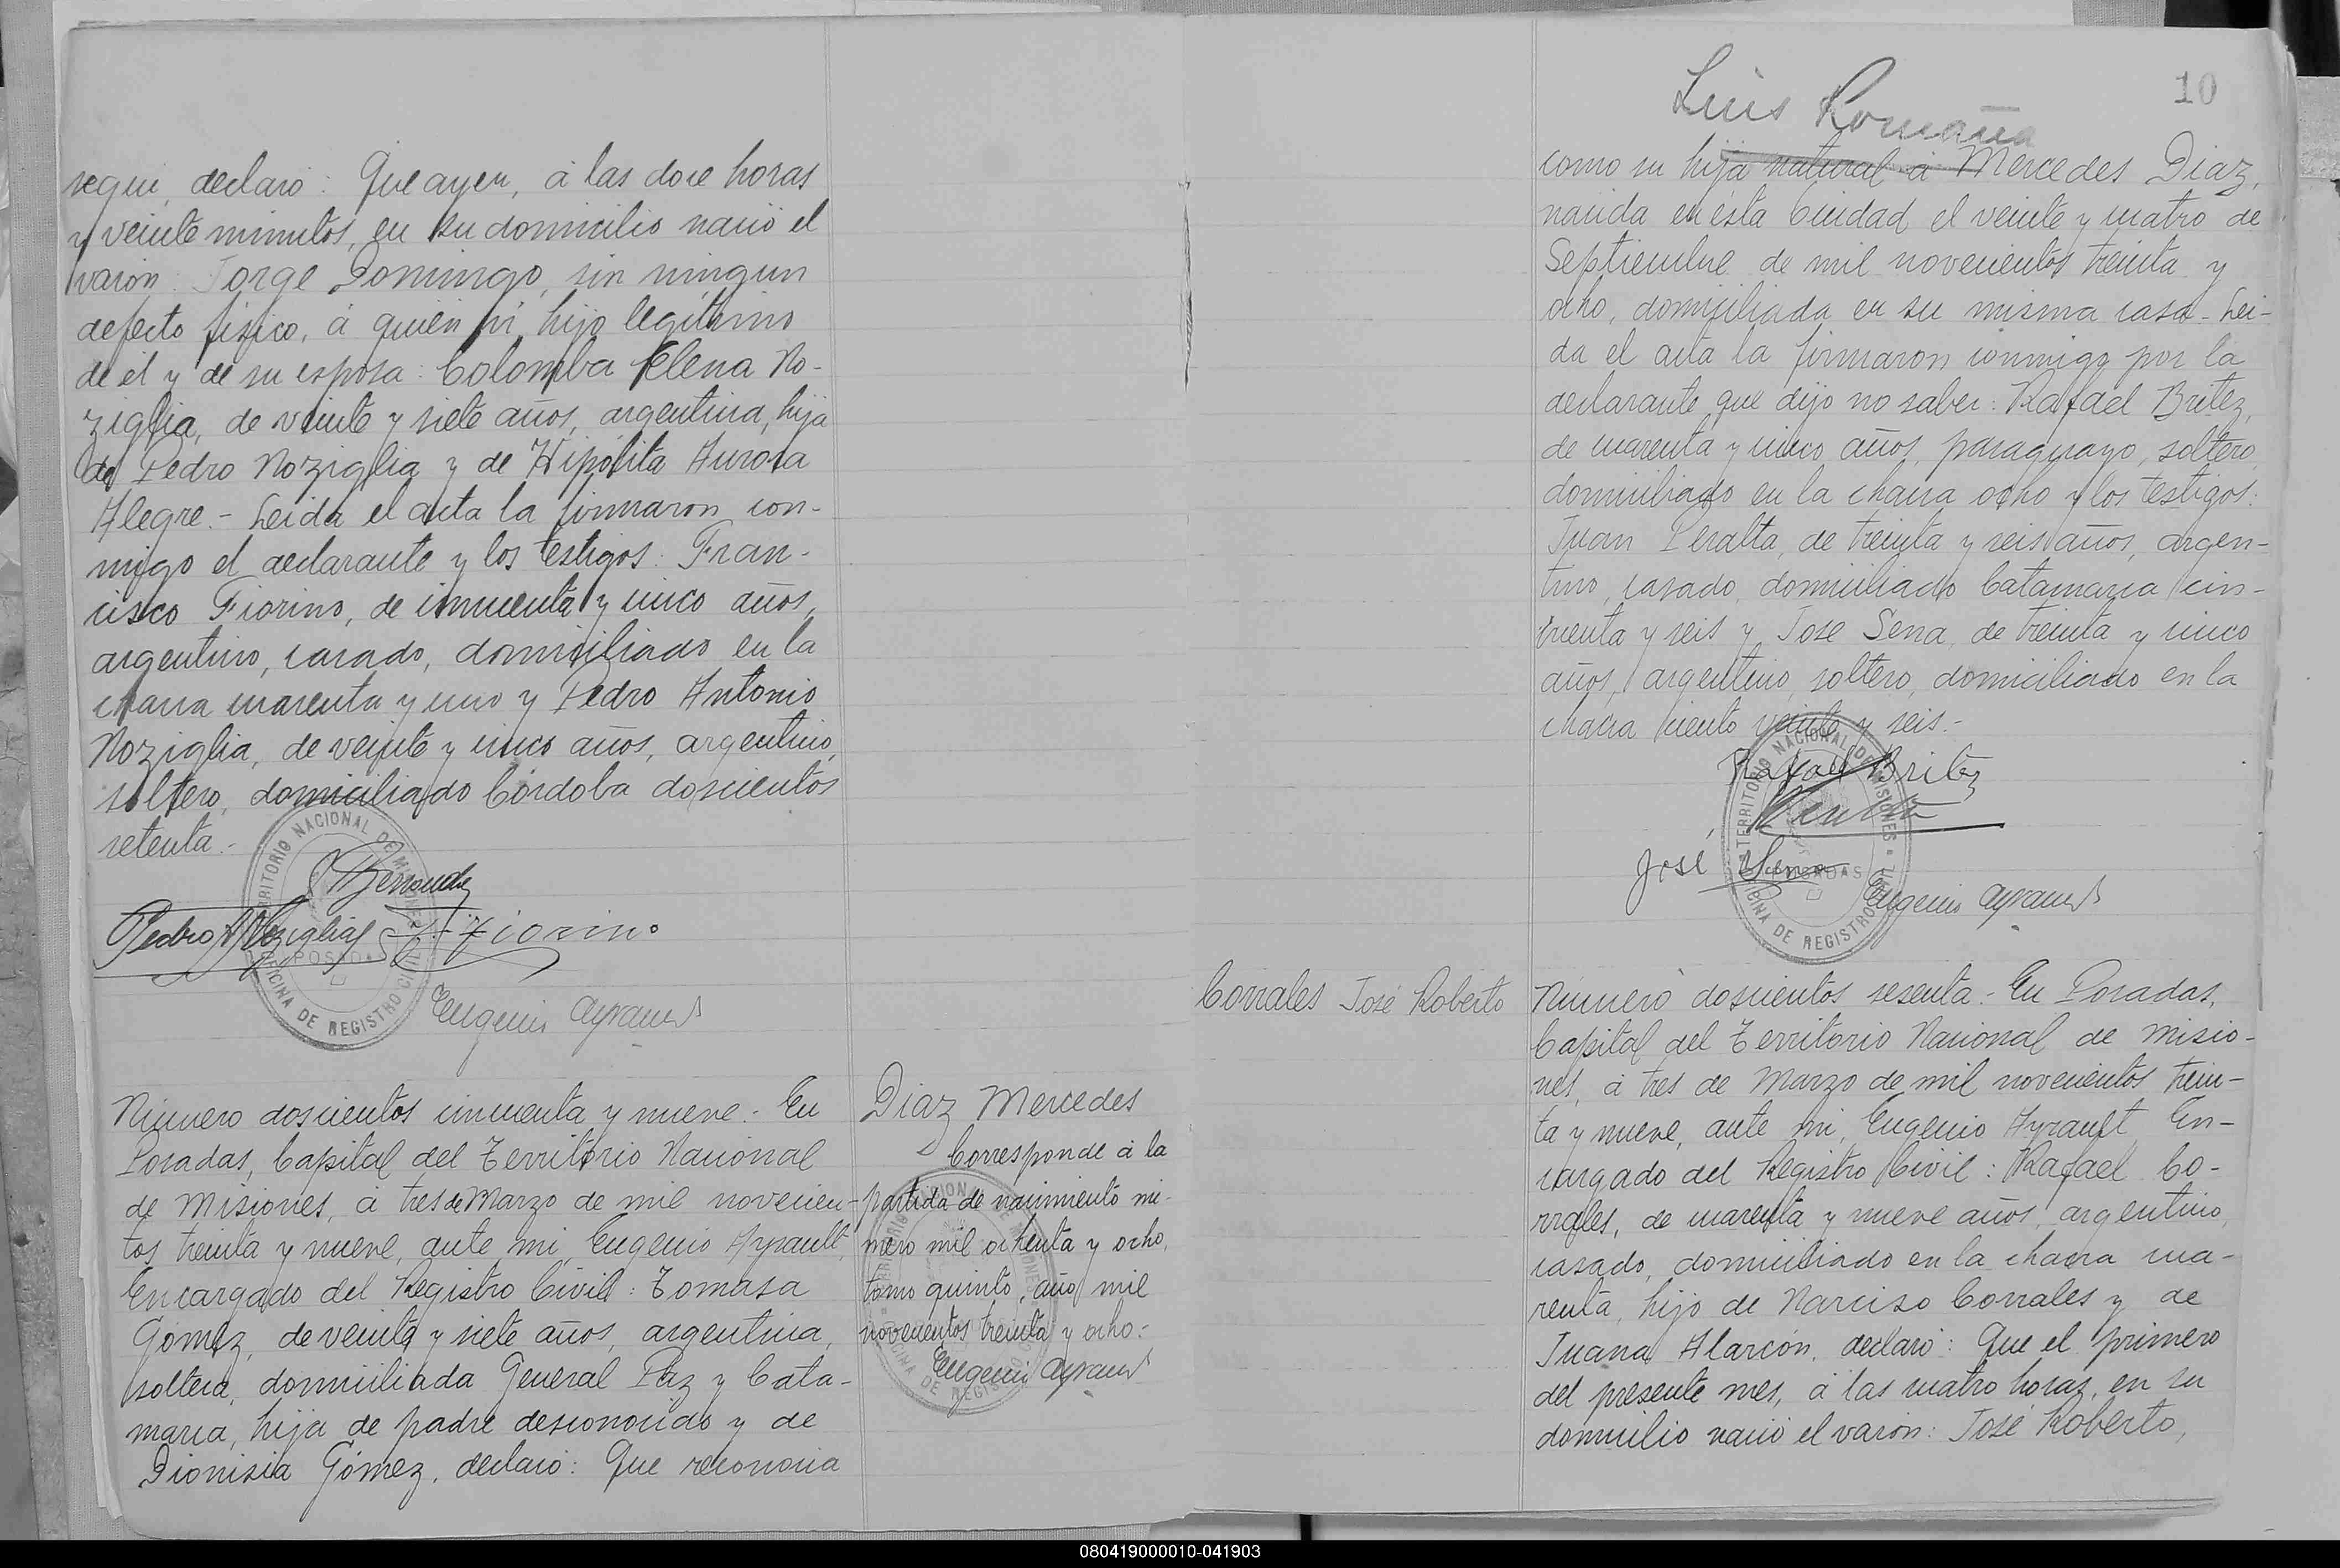 segui, declaró: Que ayer, á las doce horas
y veinte minutos, en su domicilio nació el
varón: Jorge Domingo, sin ningun
defecto fisico, á quien hijo legítimo
de él y de su esposa: Colomba Elena No-
ziglia, de veinte y siete años, argentina, hija
de Pedro Noziglia y de Hipólita Aurora
Alegre.- Leida el acta la firmaron con-
migo el declarante y los testigos: Fran-
cisco Fiorino, de cincuenta y cinco años,
argentino, casado, domiciliado en la
chacra cuarenta y uno y Pedro Antonio
Noziglia, de veinte y cinco años, argentino,
soltero, domiciliado Córdoba doscientos
setenta.-
TERRITORIO NACIONAL DE MISIONES
POSADAS
OFICINA DE REGISTRO CIVIL
Pedro A Noziglia
Fiorino
Eugenio Ayrault
Número doscientos cincuenta y nueve.- En
Posadas, Capital del Territorio Nacional
de Misiones, á tres de Marzo de mil novecien-
tos treinta y nueve, ante mi, Eugenio Ayrault,
Encargado del Registro Civil: Tomasa
Gómez, de veinte y siete años, argentina,
soltera, domiciliada General Paz y Cata-
marca, hija de padre desconocido y de
Dionisia Gómez, declaró: Que reconocia
Diaz Mercedes
Corresponde á la
partida de nacimiento nú-
mero mil ochenta y ocho,
tomo quinto, año mil
novecientos treinta y ocho:-
Eugenio Ayrault
10
Luis Romaña
como su hija natural á Mercedes Diaz,
nacida en ésta Ciudad el veinte y cuatro de
Septiembre de mil novecientos treinta y
ocho, domiciliada en su misma casa.- Lei-
da el acta la firmaron conmigo por la
declarante que dijo no saber: Rafael Britez,
de cuarenta y cinco años, paraguayo, soltero,
domiciliado en la chacra ocho y los testigos:
Juan Peralta, de treinta y seis años, argen-
tino, casado, domiciliado Catamarca cin-
cuenta y seis y José Sena, de treinta y cinco
años, argentino, soltero, domiciliado en la
chacra ciento veinte y seis.-
Rafael Britez
José Sena
Eugenio Ayrault
TERRITORIO NACIONAL DE MISIONES
POSADAS
OFICINA DE REGISTRO CIVIL
Corrales José Roberto
Número doscientos sesenta.- En Posadas,
Capital del Territorio Nacional de Misio-
nes, á tres de Marzo de mil novecientos trein-
ta y nueve, ante mi, Eugenio Ayrault, En-
cargado del Registro Civil: Rafael Co-
rrales, de cuarenta y nueve años, argentino,
casado, domiciliado en la chacra cua-
renta, hijo de Narciso Corrales y de
Juana Alarcón, declaró: Que el primero
del presente mes, á las cuatro horas, en su
domicilio nació el varón: José Roberto,
080419000010-041903